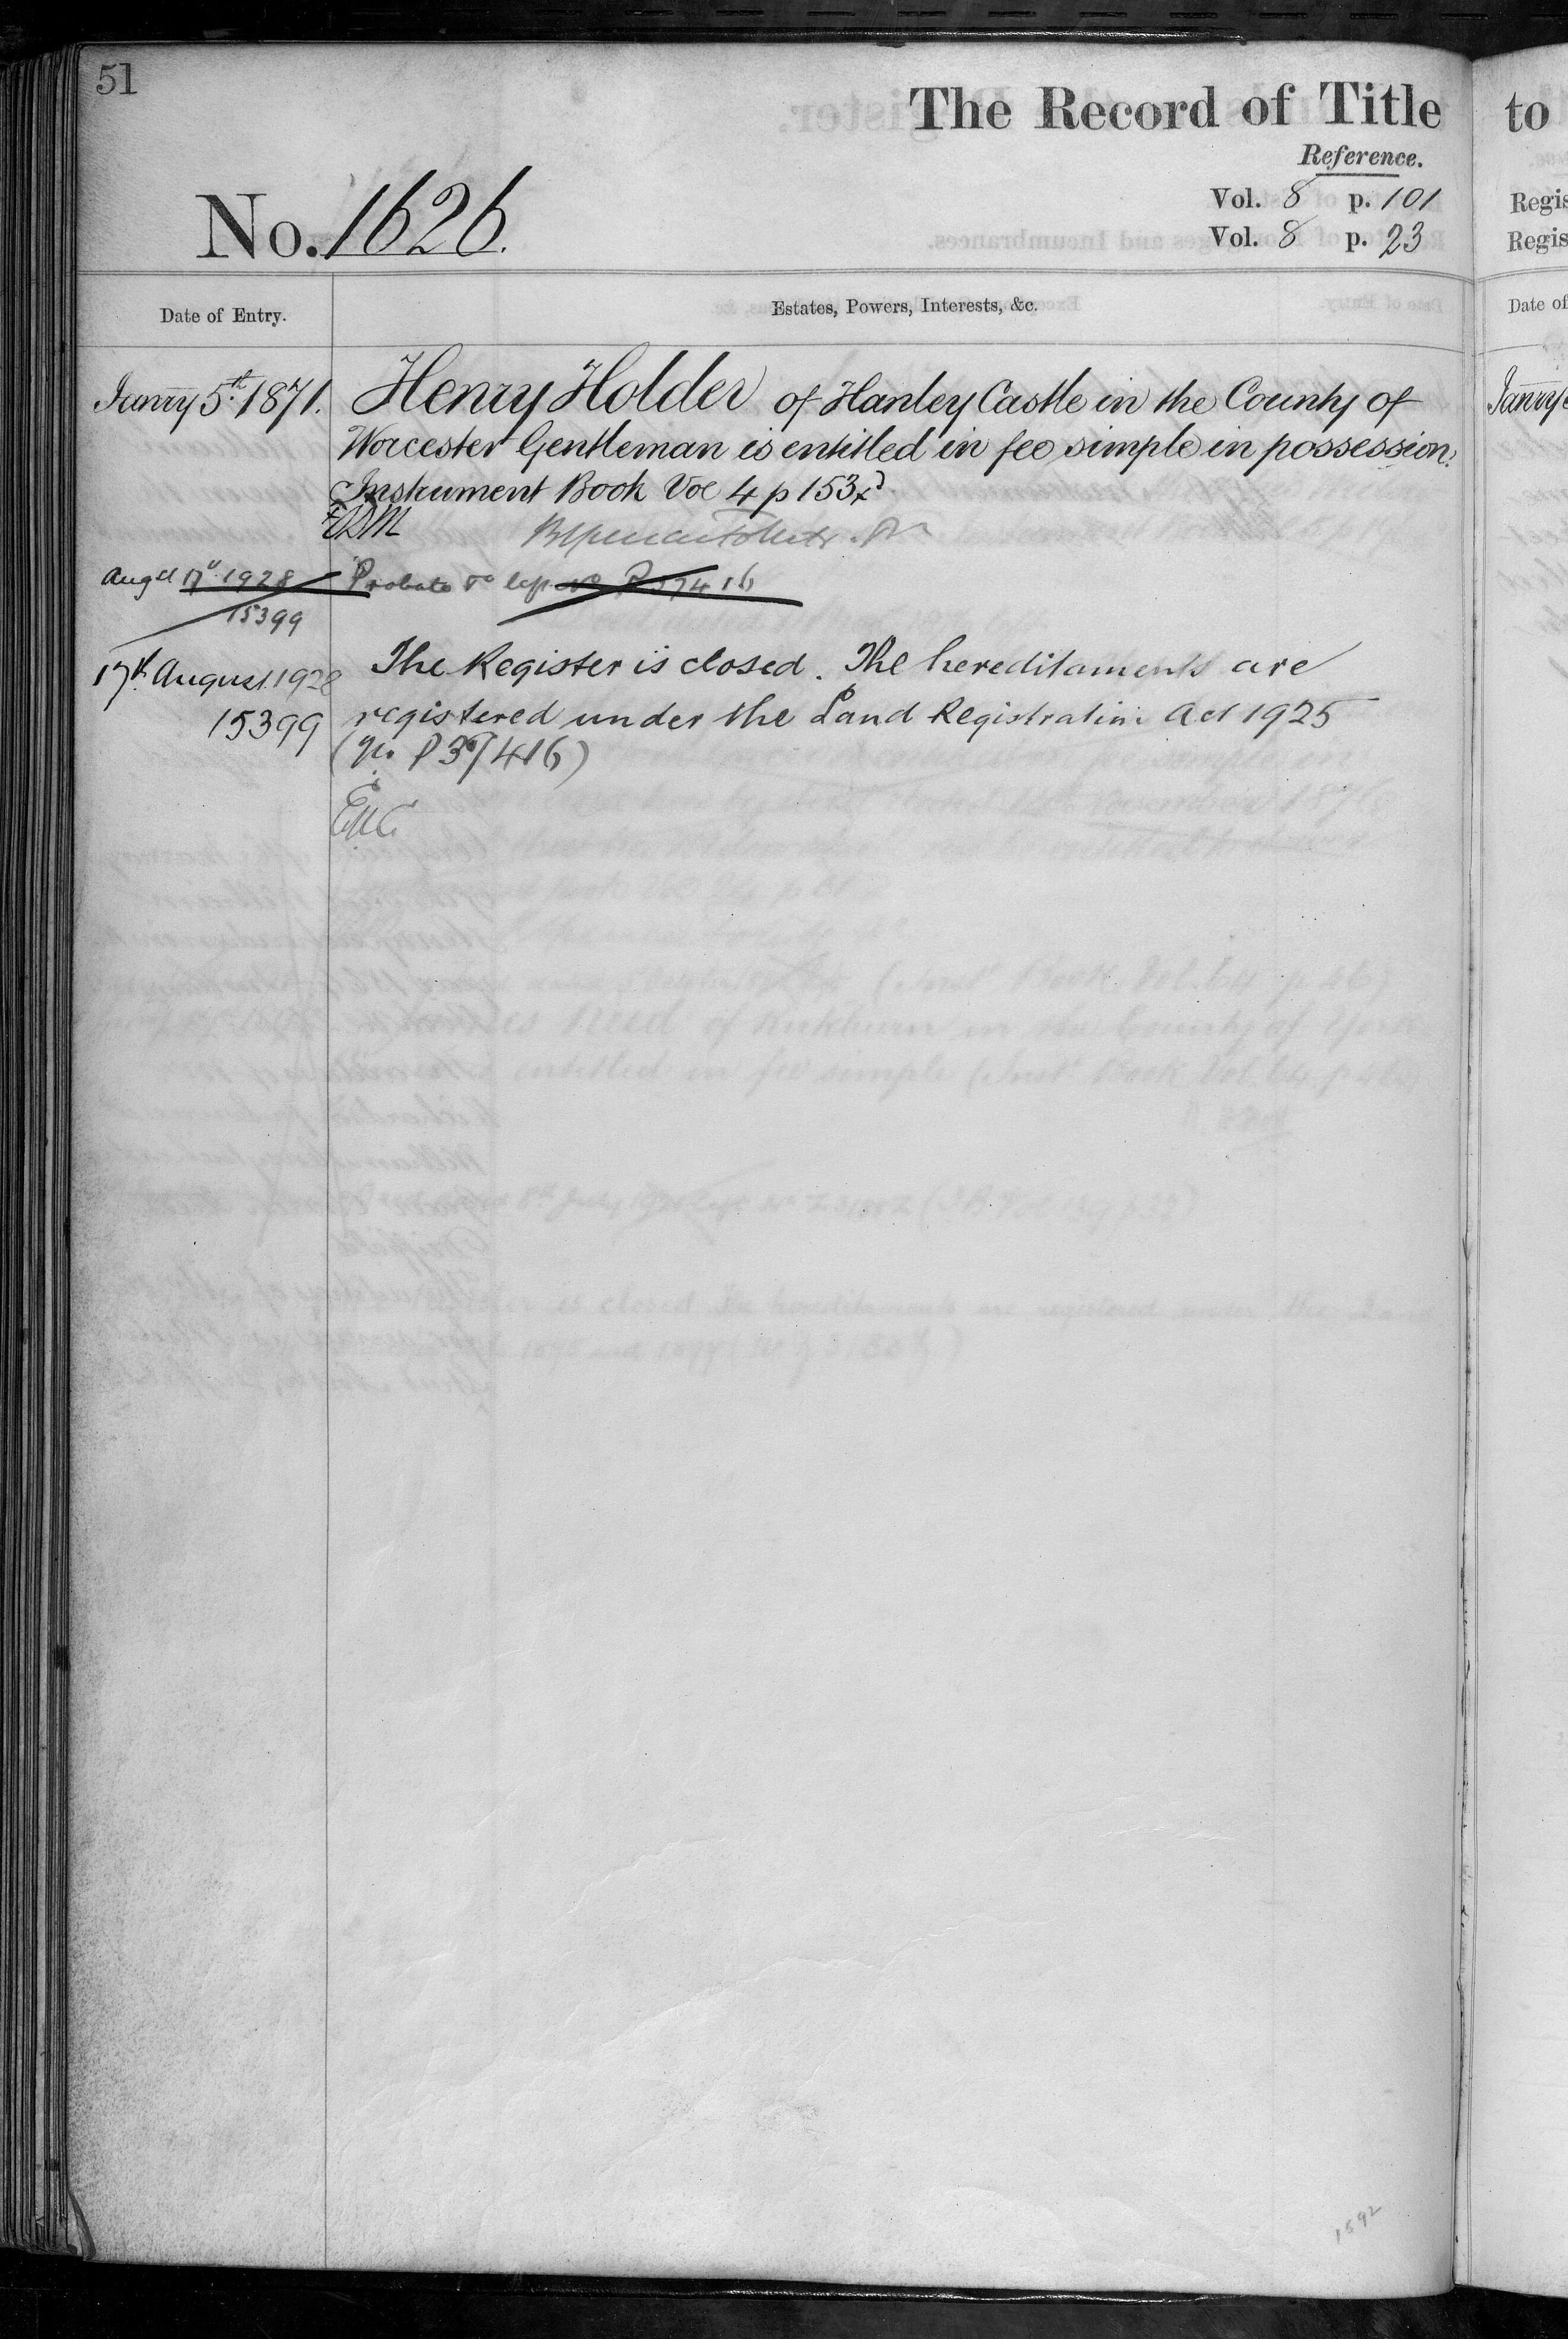 51
The Record of Title to
Reference.
Vol. 8 p. 101 Regis
Vol. 8 p. 23 Regis
No. 1626.
Date of Entry. Estates, Powers, Interests, &c. Date of
Janry 5th. 1871. Henry Holder of Hanley Castle in the County of Janry
Worcester Gentleman is entitled in fee simple in possession.
Instrument Book Vol 4 p 153
Augst 17 1928 Probate
15399
17th August 1928 The Register is closed. The hereditaments are
15399 registered under the Land Registration Act 1925
(No. P 37416)
1592